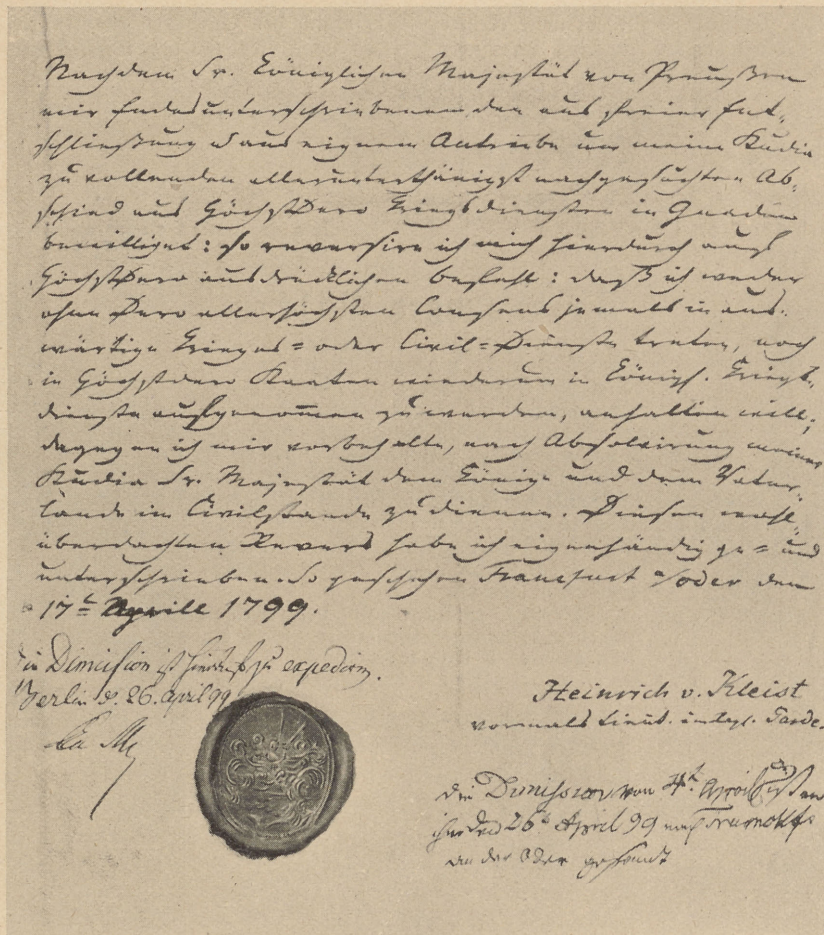 Nachdem Sr. Königlichen Majestät von Preußen
mir Endesunterschriebenem den aus freier Ent-
schließung u aus eignem Antriebe um meine Studia
zu vollenden alleruntertänigst nachgesuchten Ab-
schied aus Höchstdero Kriegsdiensten in Gnaden
bewilligt: so reversire ich mich hierdurch auf
Höchstdero ausdrücklichen Befehl: daß ich weder
ohne Dero allerhöchsten Consens jemals in aus-
wärtige Krieges= oder Civil=Dienste treten, noch
in Höchstdero Staaten wiederum in Königl. Kriegs-
dienste aufgenommen zu werden, anhalten will;
dagegen ich mir vorbehalte, nach Absolvirung meiner
Studia Sr. Majestät dem Könige und dem Vater-
lande im Civilstande zu dienen. Diesen wohl
überdachten Revers habe ich eigenhändig ge= und
unterschrieben. So geschehen Francfurt a/oder den
17t Aprill 1799.
Heinrich v. Kleist
vormals Lieut. im Rgt. Garde.
Dimission ist hierauf zu expediren.
Berlin d. 26. April 99
die Dimission vom April ist an
ihn den 26t April 99 nach
an der Oder gesandt